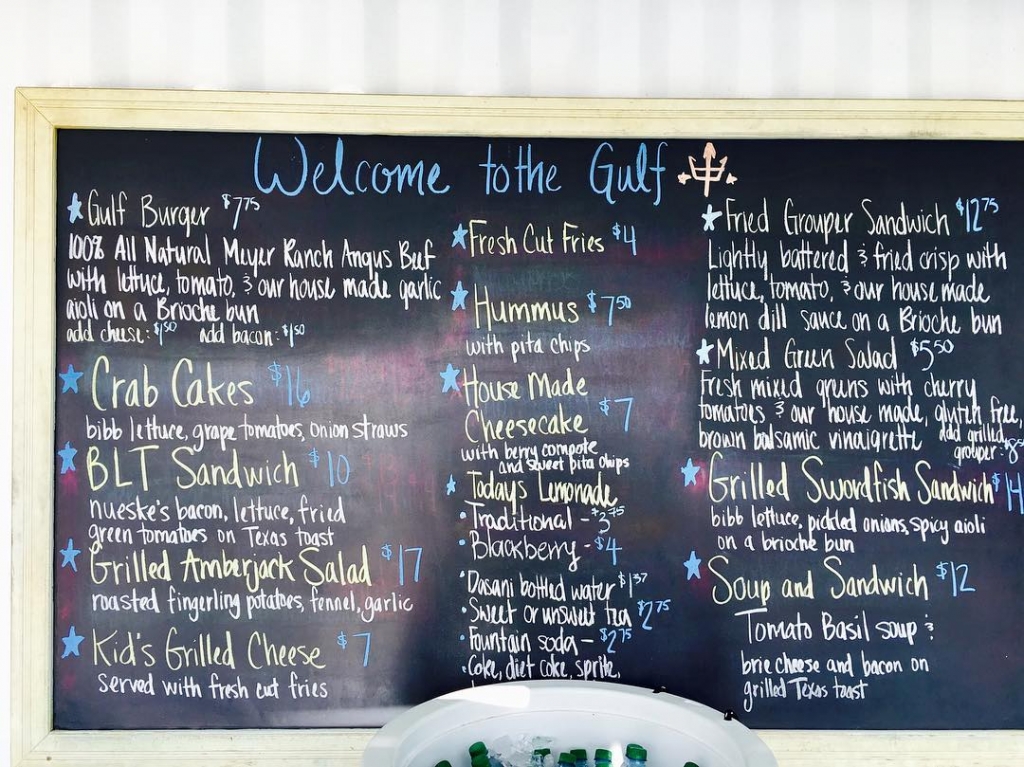 Welcome to the Gulf
Gulf Burger $7.75
100% All Natural Meyer Ranch Angus Beef
with lettuce, tomato, & our house made garlic
aioli on a Brioche bun
add cheese: $1.50 add bacon: $1.50
Crab Cakes $16
bibb lettuce, grape tomatoes, onion straws
BLT Sandwich $10
nueske's bacon, lettuce, fried
green tomatoes on Texas toast
Grilled Amberjack Salad $17
roasted fingerling potatoes, fennel, garlic
Kid's Grilled Cheese $7
served with fresh cut fries
Fresh Cut Fries $4
Hummus $7.50
with pita chips
House Made
Cheesecake $7
with berry compote
and sweet pita chips
Today's Lemonade
• Traditional - $3.75
• Blackberry - $4
• Dasani bottled water $1.37
• Sweet or unsweet tea $2.75
• Fountain soda - $2.75
• Coke, diet coke, sprite,
Fried Grouper Sandwich $12.75
Lightly battered & fried crisp with
lettuce, tomato, & our house made
lemon dill sauce on a Brioche bun
Mixed Green Salad $5.50
Fresh mixed greens with cherry
tomatoes & our house made, gluten free,
brown balsamic vinaigrette add grilled
grouper:
Grilled Swordfish Sandwich $14
bibb lettuce, pickled onions, spicy aioli
on a brioche bun
Soup and Sandwich $12
Tomato Basil soup &
brie cheese and bacon on
grilled Texas toast